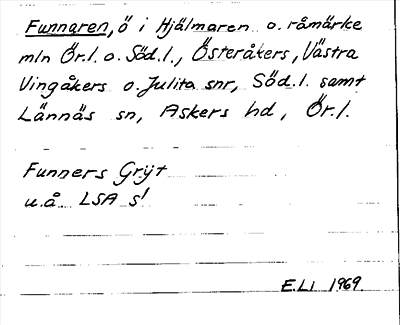 Funnaren, ö i Hjälmaren o. råmärke
mln Ör.l. o. Söd.l., Österåkers, Västra
Vingåkers o. Julita snr, Söd.l. samt
Lännäs sn, Askers hd, Ör.l.
Funners Gryt
u.å. LSA s!
E.Li 1969.